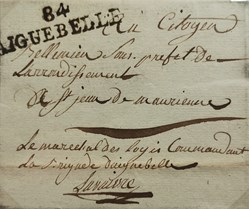 84
AIGUEBELLE
au Citoyen
Bellemin Sous prefet de
Larrondissement
de St jean de maurienne
Le marechal des logis Commandant
La Brigade daiguebelle